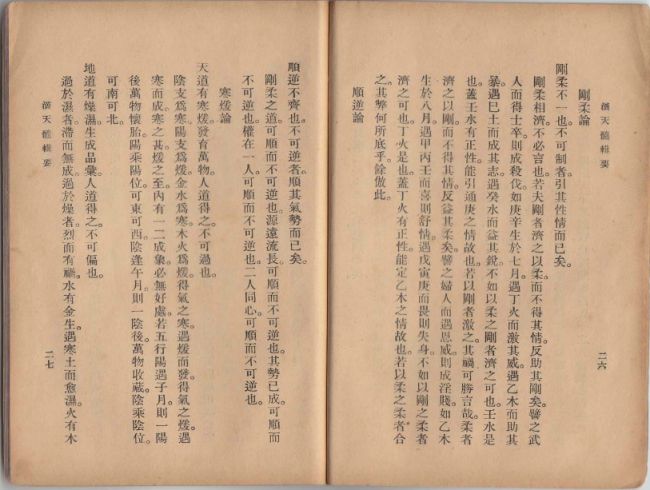 滴天髓輯要
二六
剛柔論
剛柔不一也。不可制者。引其性情而已矣。
剛柔相濟。不必言也。若夫剛者濟之以柔。而不得其情。反助其剛矣。譬之武
人而得士卒。則成殺伐。如庚辛生於七月。遇丁火而激其威。遇乙木而助其
暴。遇巳土而成其志。遇癸水而益其銳。不如以柔之剛者濟之可也。壬水是
也。蓋壬水有正性。能引通庚之情故也。若以剛者激之。其禍可勝言哉。柔者
濟之以剛。而不得其情。反益其柔矣。譬之婦人而遇恩威。則成淫賤。如乙木
生於八月。遇甲丙壬而喜則舒情。遇戊寅庚而畏則失身。不如以剛之柔者
濟之可也。丁火是也。蓋丁火有正性。能定乙木之情故也。若以柔之柔者合
之。其弊何所底乎。餘倣此。
順逆論
順逆不齊也。不可逆者。順其氣勢而已矣。
剛柔之道。可順而不可逆也。源遠流長。可順而不可逆也。其勢已成。可順而
不可逆也。權在一人。可順而不可逆也。二人同心。可順而不可逆也。
寒煖論
天道有寒煖。發育萬物。人道得之。不可過也。
陰支爲寒。陽支爲煖。金水爲寒。木火爲煖。得氣之寒。遇煖而發。得氣之煖。遇
寒而成。寒之甚。煖之至。內有一二成象。必無好處。若五行陽遇子月。則一陽
後萬物懷胎。陽乘陽位。可東可西。陰逢午月。則一陰後。萬物收藏。陰乘陰位。
可南可北。
地道有燥濕。生成品彙。人道得之。不可偏也。
過於濕者。滯而無成。過於燥者。烈而有禍。水有金生。遇寒土而愈濕。火有木
滴天髓輯要
二七